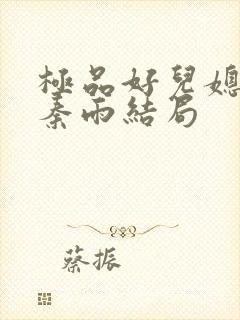 極品好兒媳
秦雨結局
蔡振